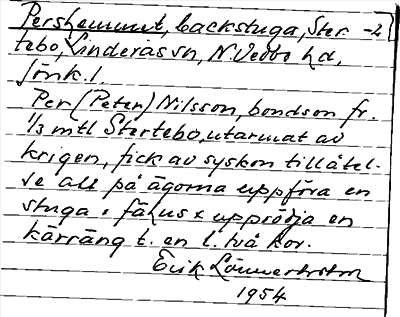 Pershemmet, backstuga, Ster- -2
tebo, Linderås sn, N. Vedbo hd,
Jönk. l.
Per (Peter) Nilsson, bondson fr.
1/3 mtl Stertebo, utarmat av
krigen, fick av syskon tillåtel-
se att på ägorna uppföra en
stuga o fähus o uppröja en
kärräng t. en l. två kor.
Erik
1954